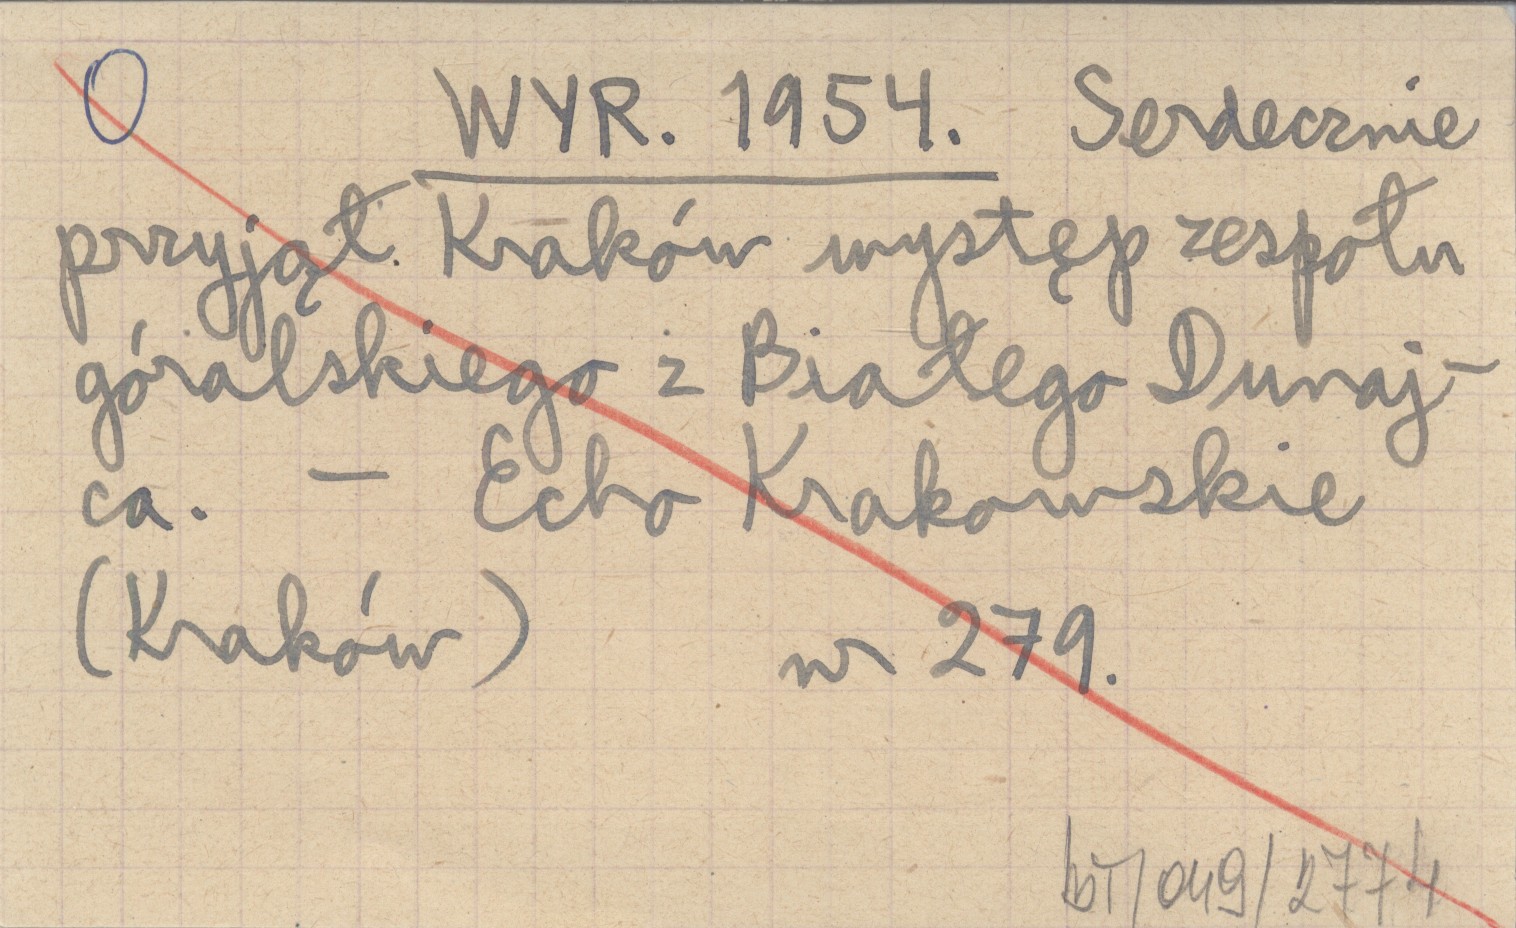 O WYR. 1954. Serdecznie
przyjął Kraków występ zespołu
góralskiego z Białego Dunaj-
ca. — Echo Krakowskie
(Kraków) nr 279.
bT/049/2774